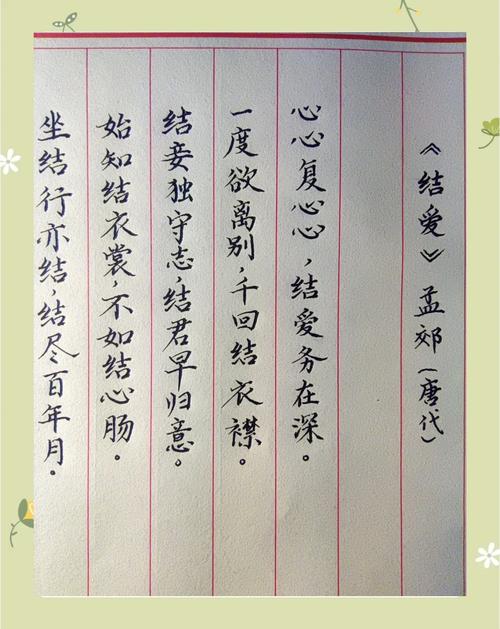 《结爱》孟郊(唐代)
心心复心心,结爱务在深。
一度欲离别,千回结衣襟。
结妾独守志,结君早归意。
始知结衣裳,不如结心肠。
坐结行亦结,结尽百年月。